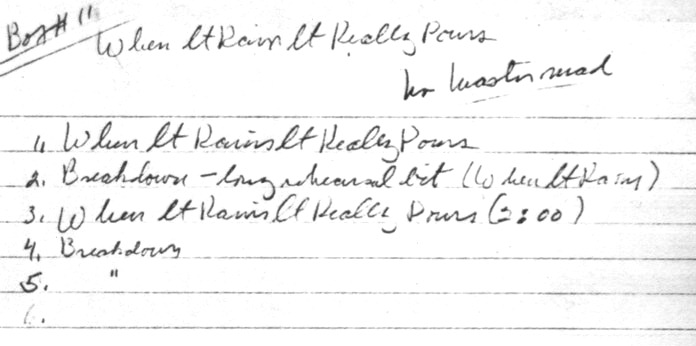 Box# 11
When It Rains It Really Pours
no master mead
1. When It Rains It Really Pours
2. Breakdown - long rehearsal bit (When It Rains)
3. When It Rains It Really Pours (2:00)
4. Breakdown
5. "
6.